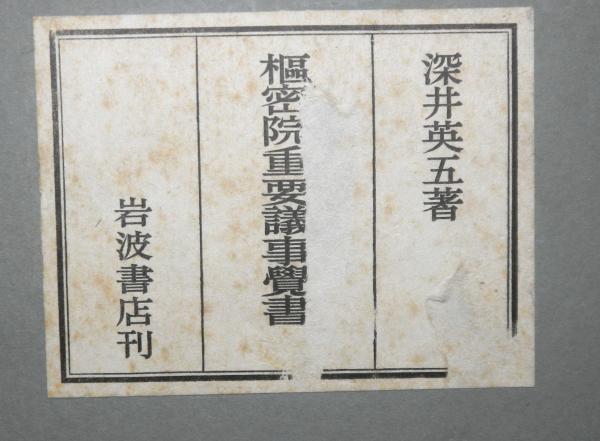 深井英五著
樞密院重要議事覺書
岩波書店刊